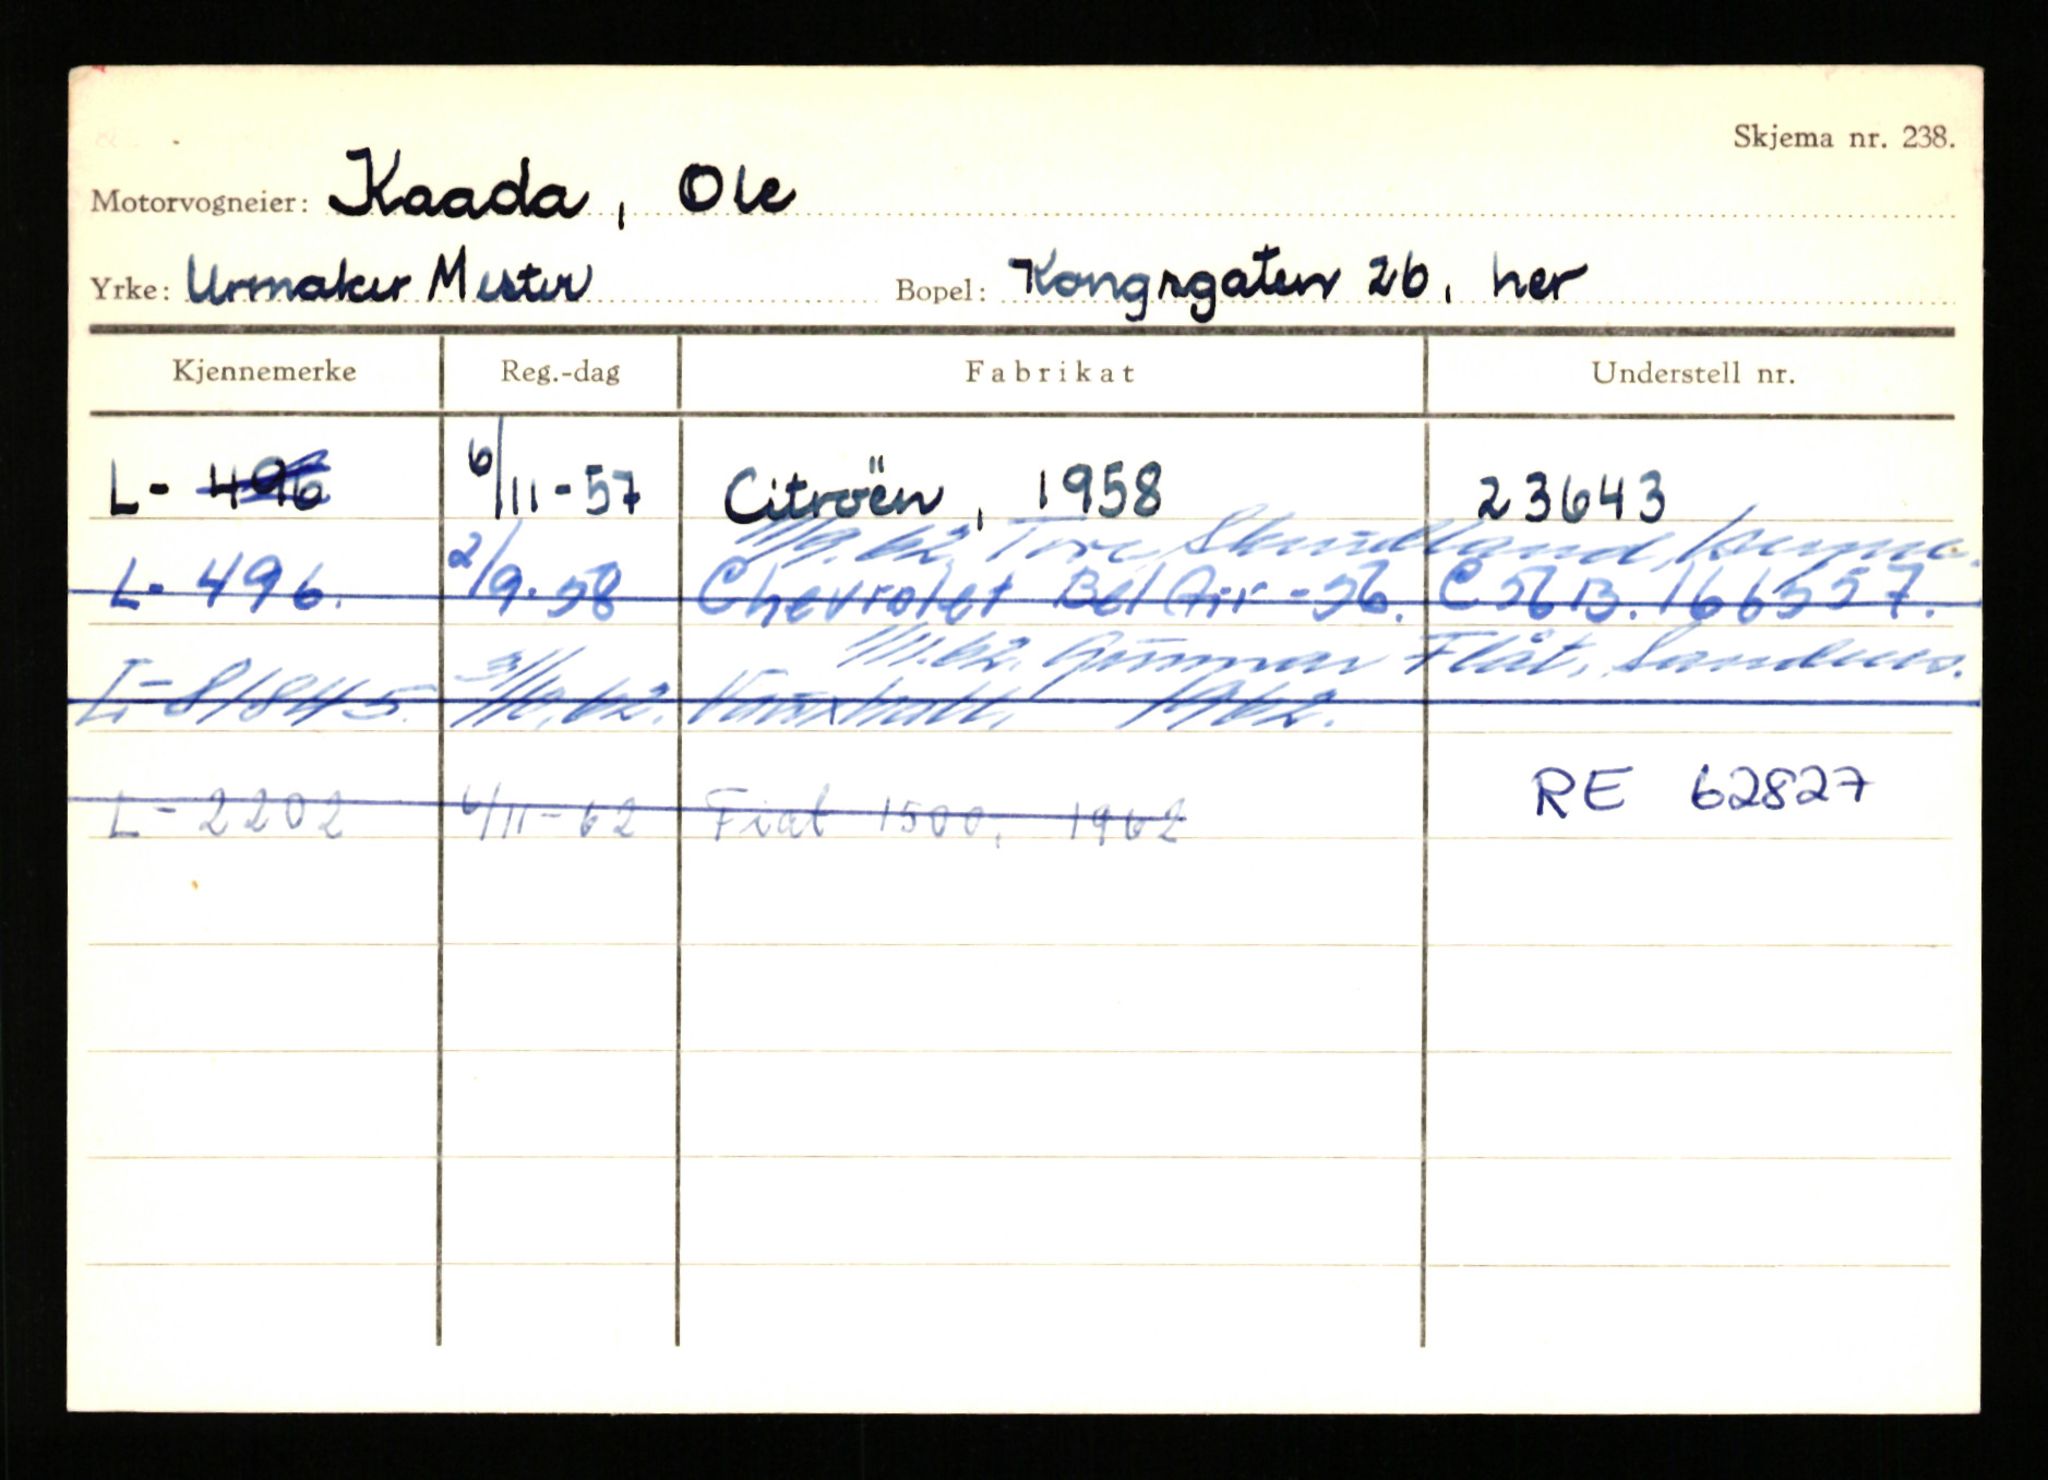 Skjema nr. 238.
Motorvogneier: Kaada, Ole
Yrke: Urmaker Mester Bopel: Kongsgaten 26, her
Kjennemerke Reg.-dag Fabrikat Understell nr.
L- 496 6/11-57 Citroën, 1958 23643
11/9.62 Tore Skudland,
L- 496. 2/9.58 Chevrolet Bel Air -56. C56B.166557.
1/11.62. Gunnar Flåt, Sandnes.
L-81845. 3/10.62. Vauxhall, 1962.
L-2202 6/11-62 Fiat 1500, 1962 RE 62827